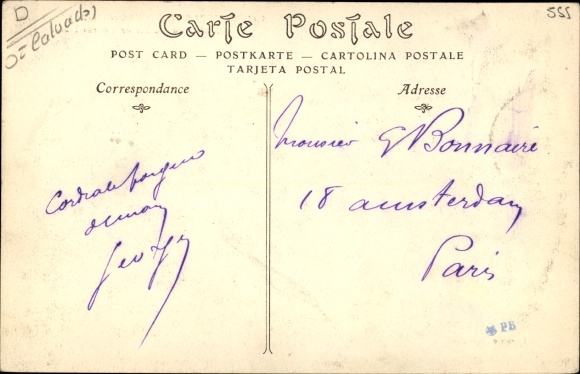 D
(Calvados)
555
Carte Postale
POST CARD — POSTKARTE — CARTOLINA POSTALE
TARJETA POSTAL
Correspondance
Adresse
Monsieur G Bonnaire
18 amsterdam
Paris
Cordiale
PB